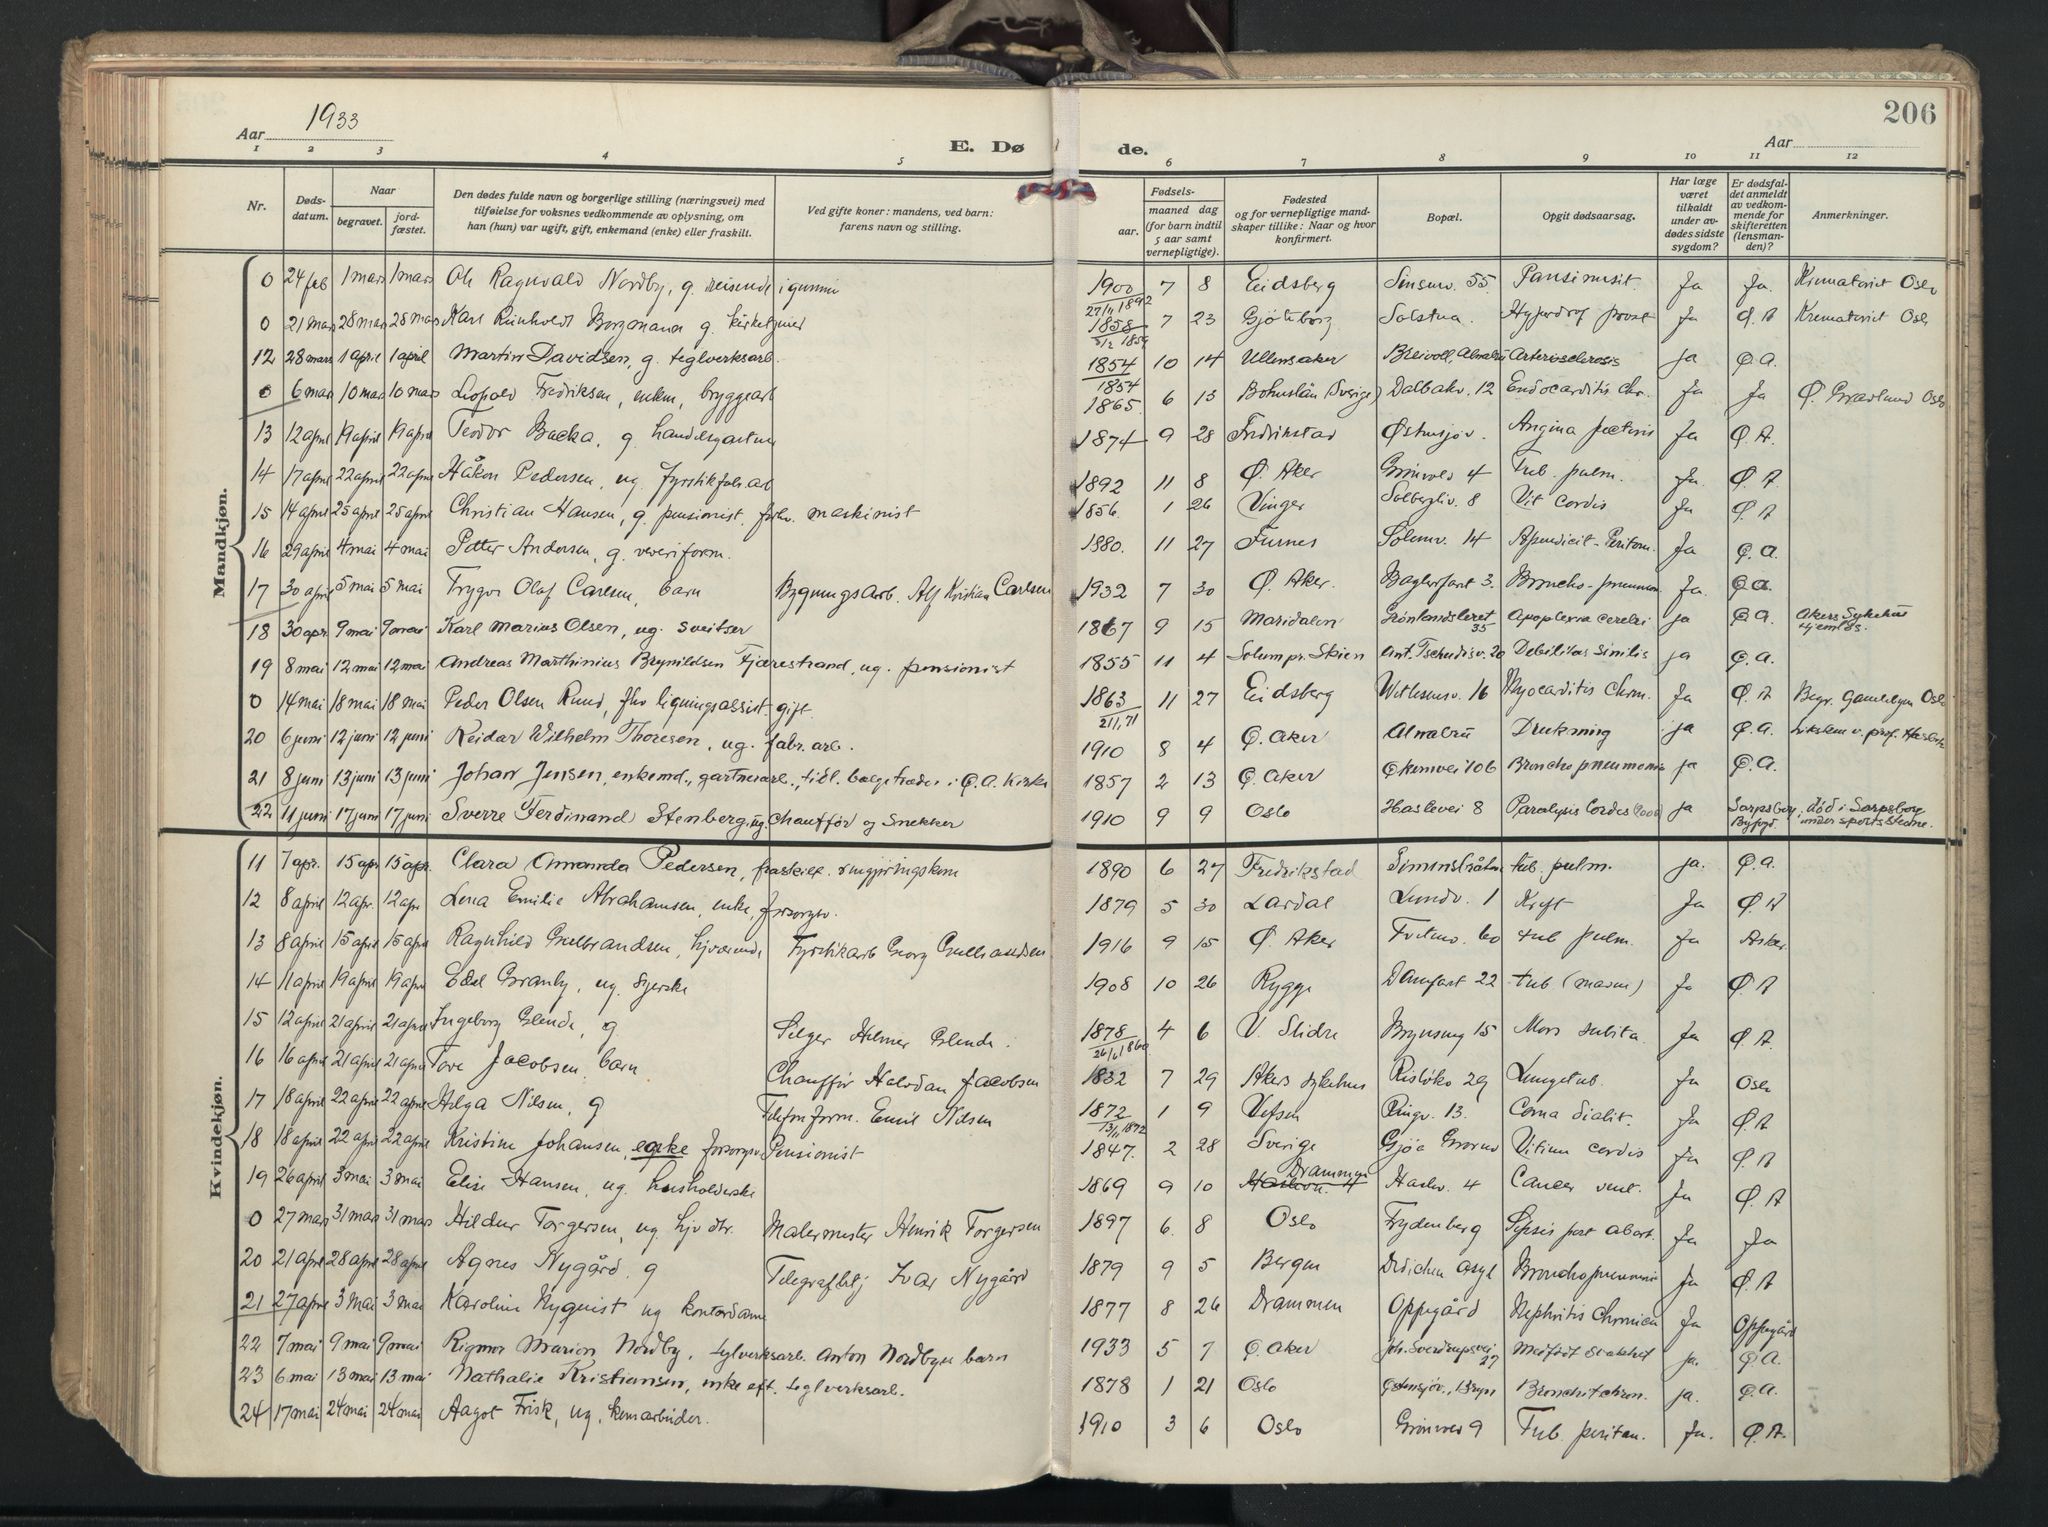 206
Aar 1933
E. Døde.
Aar
1 2 3 4 5 6 7 8 9 10 11 12
Nr.
Dødsdatum.
Naar
begravet.
jordfæstet.
Den dødes fulde navn og borgerlige stilling (næringsvei) med
tilføielse for voksnes vedkommende av oplysning, om
han (hun) var ugift, gift, enkemand (enke) eller fraskilt.
Ved gifte koner: mandens, ved barn:
farens navn og stilling.
Fødsels-
aar.
maaned dag
(for barn indtil
5 aar samt
vernepligtige).
Fødested
og for vernepligtige mand-
skaper tillike: Naar og hvor
konfirmert.
Bopæl.
Opgit dødsaarsag.
Har læge
været
tilkaldt
under av-
dødes sidste
sygdom?
Er dødsfal-
det anmeldt
av vedkom-
mende for
skifteretten
(lensman-
den)?
Anmerkninger.
Mandkjøn.
0 24 feb 1 mars 1 mars Ole Ragnvald Nordby, g. reisende i gummi 1900 27/11 1892 7 8 Eidsberg Sinsenv. 55. Ja Ja. Krematoriet Oslo
0 21 mars 28 mars 28 mars Karl Reinholdt Borgmann g. kirketjener 1858 7 23 Gøteborg Solstua. Hypertrof prost Ja Ø. A Krematoriet Oslo
12 28 mars 1 april 1 april Martin Davidsen, g. teglverksarb. 1854 10 14 Ullensaker Breivoll, Alnabru Arteriosclerosis ja Ø. A.
0 6 mars 10 mars 10 mars Leopold Fredriksen, enkm, bryggearb 1854 1865. 6 13 Bohuslän (Sverige) Dalbakv. 12 Endocarditis Chr. Ja Ja Ø. Gravlund Oslo
13 12 april 19 april 19 april Teodor Backa, g. handelsgartner 1874 9 28 Fredrikstad Østensjøv. Angina pectoris Ja Ø. A.
14 17 april 22 april 22 april Håkon Pedersen, ug. fyrstikfabr.arb 1892 11 8 Ø. Aker Grønvold 4 Tub. pulm. Ja. Ø. A
15 14 april 25 april 25 april Christian Hansen, g. pensionist. forhv. maskinist 1856. 1 26 Vinger Solbergliv. 8 Vit Cordis Ja Ø. A
16 29 april 4 mai 4 mai Petter Andersen, g. veveriform. 1880. 11 27 Furnes Solenv. 14 Apendicit-Peritom. Ja Ø. A.
17 30 april 5 mai 5 mai Trygve Olaf Carlsen, barn Bygningsarb. Alf Kristian Carlsen 1932 7 30 Ø. Aker. Baglerfaret 3. Broncho-pneumon Ja. Ø. A.
18 30 apr. 9 mai 9 mai Karl Marius Olsen, ug. sveitser 1867 9 15 Maridalen Grønlandsleret 35 Apoplexia cerebri ja Ø. A. Akers Sykehus Hjemløs.
19 8 mai 12 mai 12 mai Andreas Marthinius Brynildsen Fjærestrand, ug. pensionist 1855 11 4 Solum pr. Skien Ant. Tschudisv. 20 Debilitas Sinilis ja Ø. A.
0 14 mai 18 mai 18 mai Peder Olsen Ruud, fhv ligningsassist. gift. 1863 21/1, 71 11 27 Eidsberg Wilhemsv. 16 Myocarditis Chron. Ja Ø. A Begr. Gamlebyen Oslo
20 6 juni 12 juni 12 juni Reidar Wilhelm Thoresen, ug. fabr. arb. 1910 8 4 Ø. Aker Alnabru Drukning ja Ø. A.
21 8 juni 13 juni 13 juni Johan Jensen, enkemd., gartnerarb., tidl. belgetræder i Ø. A. Kirke 1857 2 13 Ø. Aker Økernvei 106 Bronchopneumonia ja Ø. A.
22 11 juni 17 juni 17 juni Sverre Ferdinand Stenberg, ug. Chauffør og Snekker 1910 9 9 Oslo Haslevei 8 Paralysis Cordis ja Sarpsborg Byfogd. død i Sarpsborg under sportsstevne.
Kvindekjøn.
11 7 apr. 15 apr 15 apr. Clara Amanda Pedersen, fraskilt. rengjøringskone 1890 6 27 Fredrikstad tub. pulm. ja. Ø. A.
12 8 april 12 apr. 12 apr Lena Emilie Abrahamsen, enke, forsorgsv. 1879 5 30 Lardal Lundv. 1 Kreft Ja Ø. A
13 8 april 15 april 15 apr Ragnhild Gulbrandsen, hjværende Fyrstikarb Georg Gulbrandsen 1916 9 15 Ø. Aker Tvetenv. 60 tub pulm. Ja Asker.
14 11 april 19 april 19 apr Edel Granby, ug. syerske 1908 10 26 Rygge Damfaret 22 tub. Ja Ø. A
15 12 april 21 april 21 april Ingeborg Blende, g Selger Helmer Blende. 1878 4 6 V. Slidre Brynseng 15 Mors subita. Ja Ø. A.
16 16 april 21 april 21 april Tove Jacobsen, barn Chauffør Halvdan Jacobsen 1832 7 29 Akers sykehus Risløkv 29 Lungetub. Ja Oslo
17 18 april 22 april 22 april Helga Nilsen, g Telefonform. Emil Nilsen 1872 13/11 1872 1 9 Vefsen Ringv. 13. Coma diabit. Ja Ø. A
18 18 april 22 april 22 april Kristine Johansen, enke forsorgsv. Pensionist 1847. 2 28 Sverige Gjøa Grorud Vitium cordis Ja Ø. A
19 26 april 3 mai 3 mai Elise Hansen, ug. husholderske 1869 9 10 Drammen Haslev. 4 Cancer vent. Ja Ø. A
0 27 mars 31 mars 31 mars Hildur Torgersen, ug. hjv dtr. Malermester Henrik Torgersen 1897 6. 8 Oslo Frydenberg Sepsis post abort. Ja Ja
20 21 april 28 april 28 april Agnes Nygård, g Telegrafbetj Ivar Nygård 1879 9 5 Bergen Dedichen asyl Bronchopneumonie Ja Ø. A
21 27 april 3 mai 3 mai Karoline Nyquist ug kontordame 1877 8 26 Drammen Oppegård Nephritis Chronica Ja Oppegård
22 7 mai 9 mai 9 mai Rigmor Marion Nordby, teglverksarb. Anton Nordbyes barn 1933 5 7 Ø. Aker Joh. Sverdrupsvei 27 Medfødt svakhet ja. Ø. A.
23 6 mai 13 mai 13 mai Nathalie Kristiansen, enke eft. teglverksarb. 1878 1 21 Oslo Østensjøv., Bryn Bronchit chron. ja. Ø. A.
24 17 mai 24 mai 24 mai Aagot Frisk, ug. kunarbeider. 1910 3 6 Oslo Grønvold 9 Tub. peritan. Ja. Ø. A.